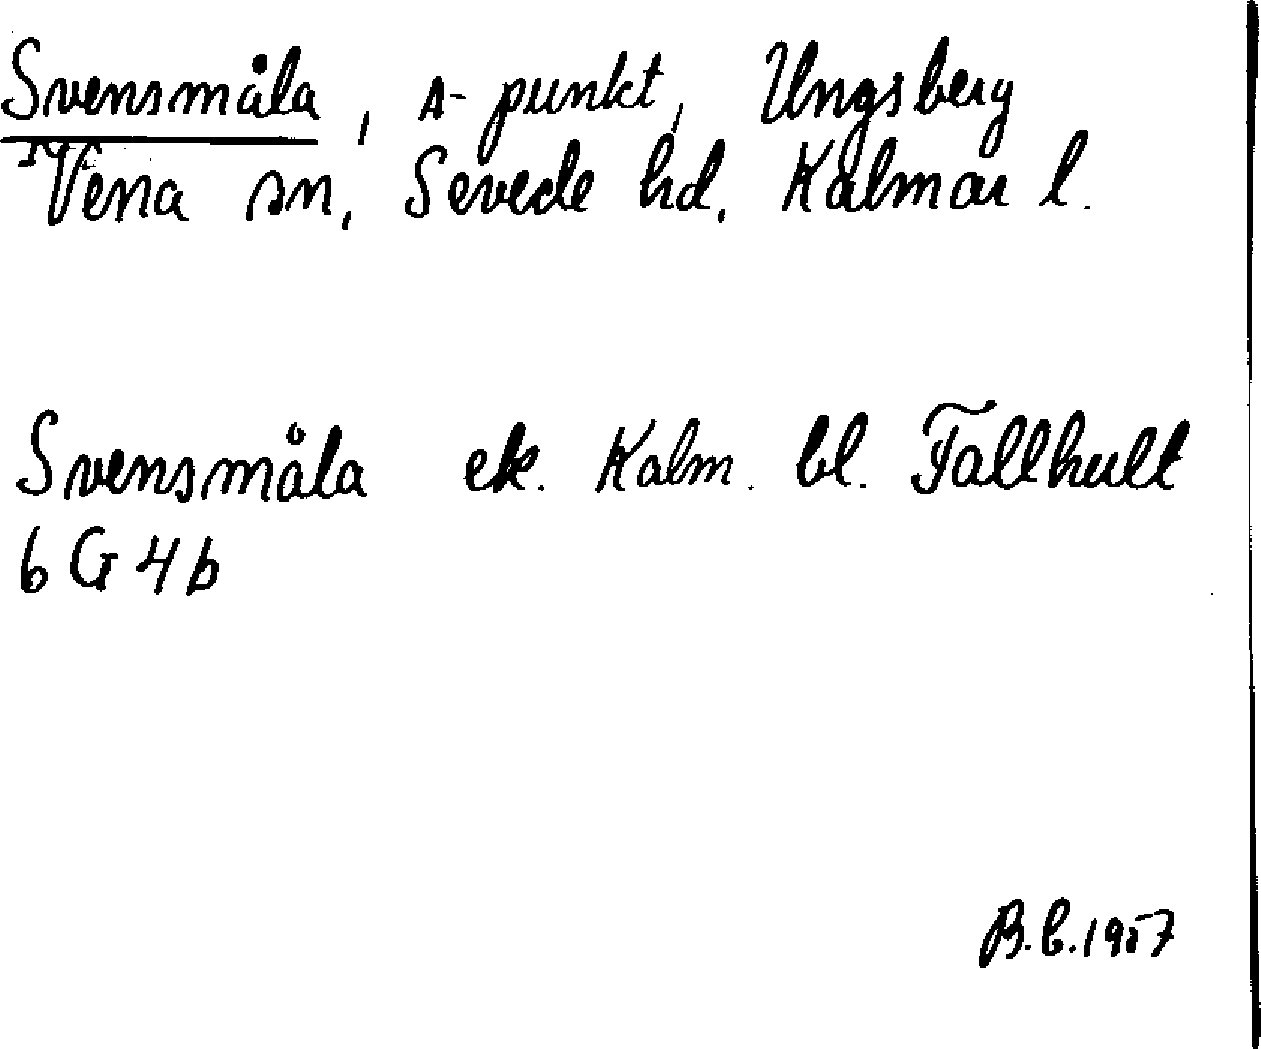 Svensmåla, A-punkt, Ungsberg
Vena sn, Sevede hd, Kalmar l.
Svensmåla ek. Kalm. bl. Fallhult
6 G 4 b
B.b. 1957